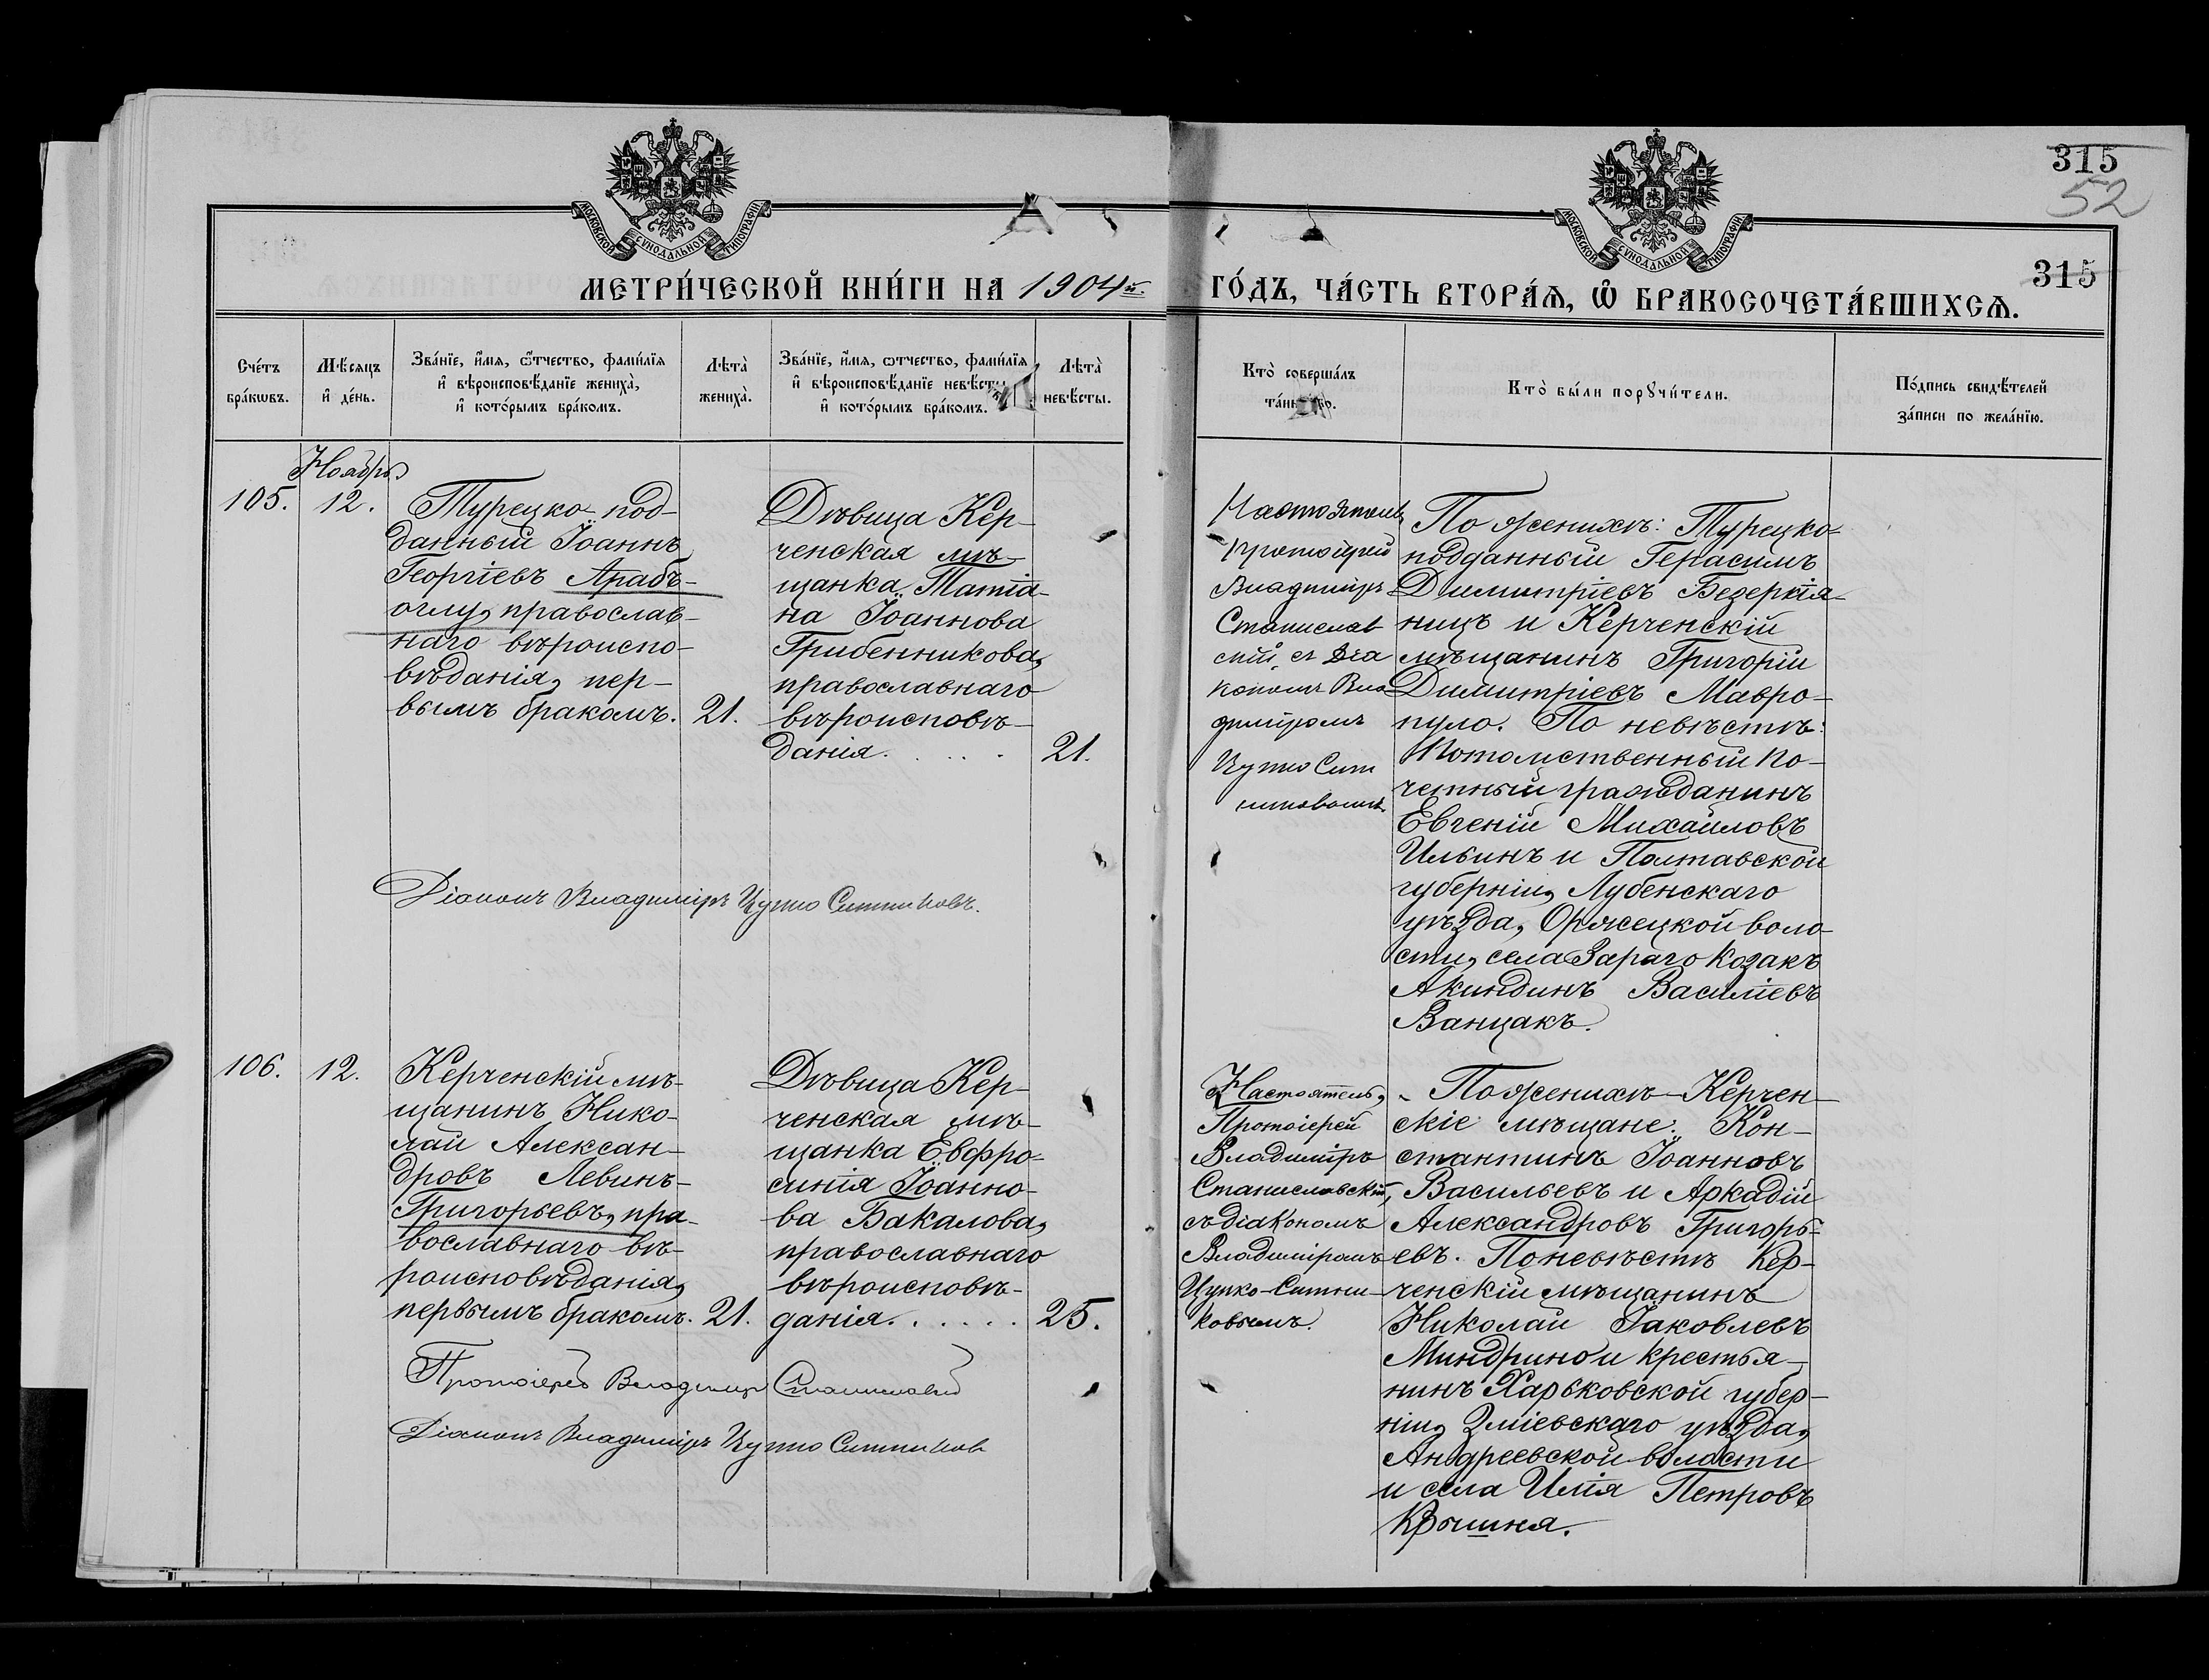 315
52
МОСКОВСКОЙ СУНОДАЛЬНОЙ ТИПОГРАФІИ
МОСКОВСКОЙ СУНОДАЛЬНОЙ ТИПОГРАФІИ
315
МЕТРИ́ЧЕСКОЙ КНИ́ГИ НА 1904й.
ГО́ДЪ, ЧА́СТЬ ВТОРА́Ѧ, Ѽ БРАКОСОЧЕТА́ВШИХСѦ.
Сче́тъ
бра́кѡвъ.
Мѣ́сяцъ
и҆ де́нь.
Зва́нїе, и҆́мѧ, ѻ҆́тчество, фами́лїѧ
и҆ вѣроисповѣ́данїе жениха̀,
и҆ кото́рымъ бра́комъ.
Лѣта̀
жениха̀.
Зва́нїе, и҆́мѧ, ѻ҆́тчество, фами́лїѧ
и҆ вѣроисповѣ́данїе невѣ́сты
и҆ кото́рымъ бра́комъ.
Лѣта̀
невѣ́сты.
Кто̀ соверша́лъ
Кто̀ бы́ли порꙋчи́тели.
По́дпись свидѣ́телей
за́писи по жела́нїю.
Ноябрь
105.
12.
Турецко-под-
данный Іоаннъ
Георгіевъ Арабъ-
оглу, православ-
наго вѣроиспо-
вѣданія, пер-
вымъ бракомъ.
21.
Дѣвица Кер-
ченская мѣ-
щанка Татіа-
на Іоаннова
Грибенникова,
православнаго
вѣроисповѣ-
данія. . . . .
21.
Настоятель
протоіерей
Владиміръ
Станислав
скій, съ Діа
кономъ Вла
диміромъ
Цупко Сит
никовымъ
По женихѣ: Турецко-
подданный Герасимъ
Димитріевъ Безеркія-
ницъ и Керченскій
мѣщанинъ Григорій
Димитріевъ Мавро-
пуло. По невѣстѣ:
Потомственный по-
четный гражданинъ
Евгеній Михайловъ
Ильинъ и Полтавской
губерніи, Лубенскаго
уѣзда, Оржецкой воло-
сти, села Зараго козакъ
Акиндинъ Василіевъ
Ванцакъ.
Діаконъ Владиміръ Цупко Ситниковъ.
106.
12.
Керченскій мѣ-
щанинъ Нико-
лай Алексан-
дровъ Левинъ-
Григорьевъ, пра-
вославнаго вѣ-
роисповѣданія,
первымъ бракомъ.
21.
Дѣвица Кер-
ченская мѣ-
щанка Евфро-
синія Іоанно-
ва Бакалова,
православнаго
вѣроисповѣ-
данія. . . . . .
25.
Настоятель,
Протоіерей
Владиміръ
Станиславскій,
съ діакономъ
Владиміромъ
Цупко-Ситни-
ковымъ.
По женихѣ - Керчен-
скіе мѣщане: Кон-
стантинъ Іоанновъ
Васильевъ и Аркадій
Александровъ Григорь-
евъ. По невѣстѣ Кер-
ченскій мѣщанинъ
Николай Іаковлевъ
Миндрино и крестья-
нинъ Харьковской губер-
ніи, Зміевскаго уѣзда,
Андреевской волости
и села Илія Петровъ
Протоіерей Владимір Станиславскій
Діаконъ Владиміръ Цупко Ситников